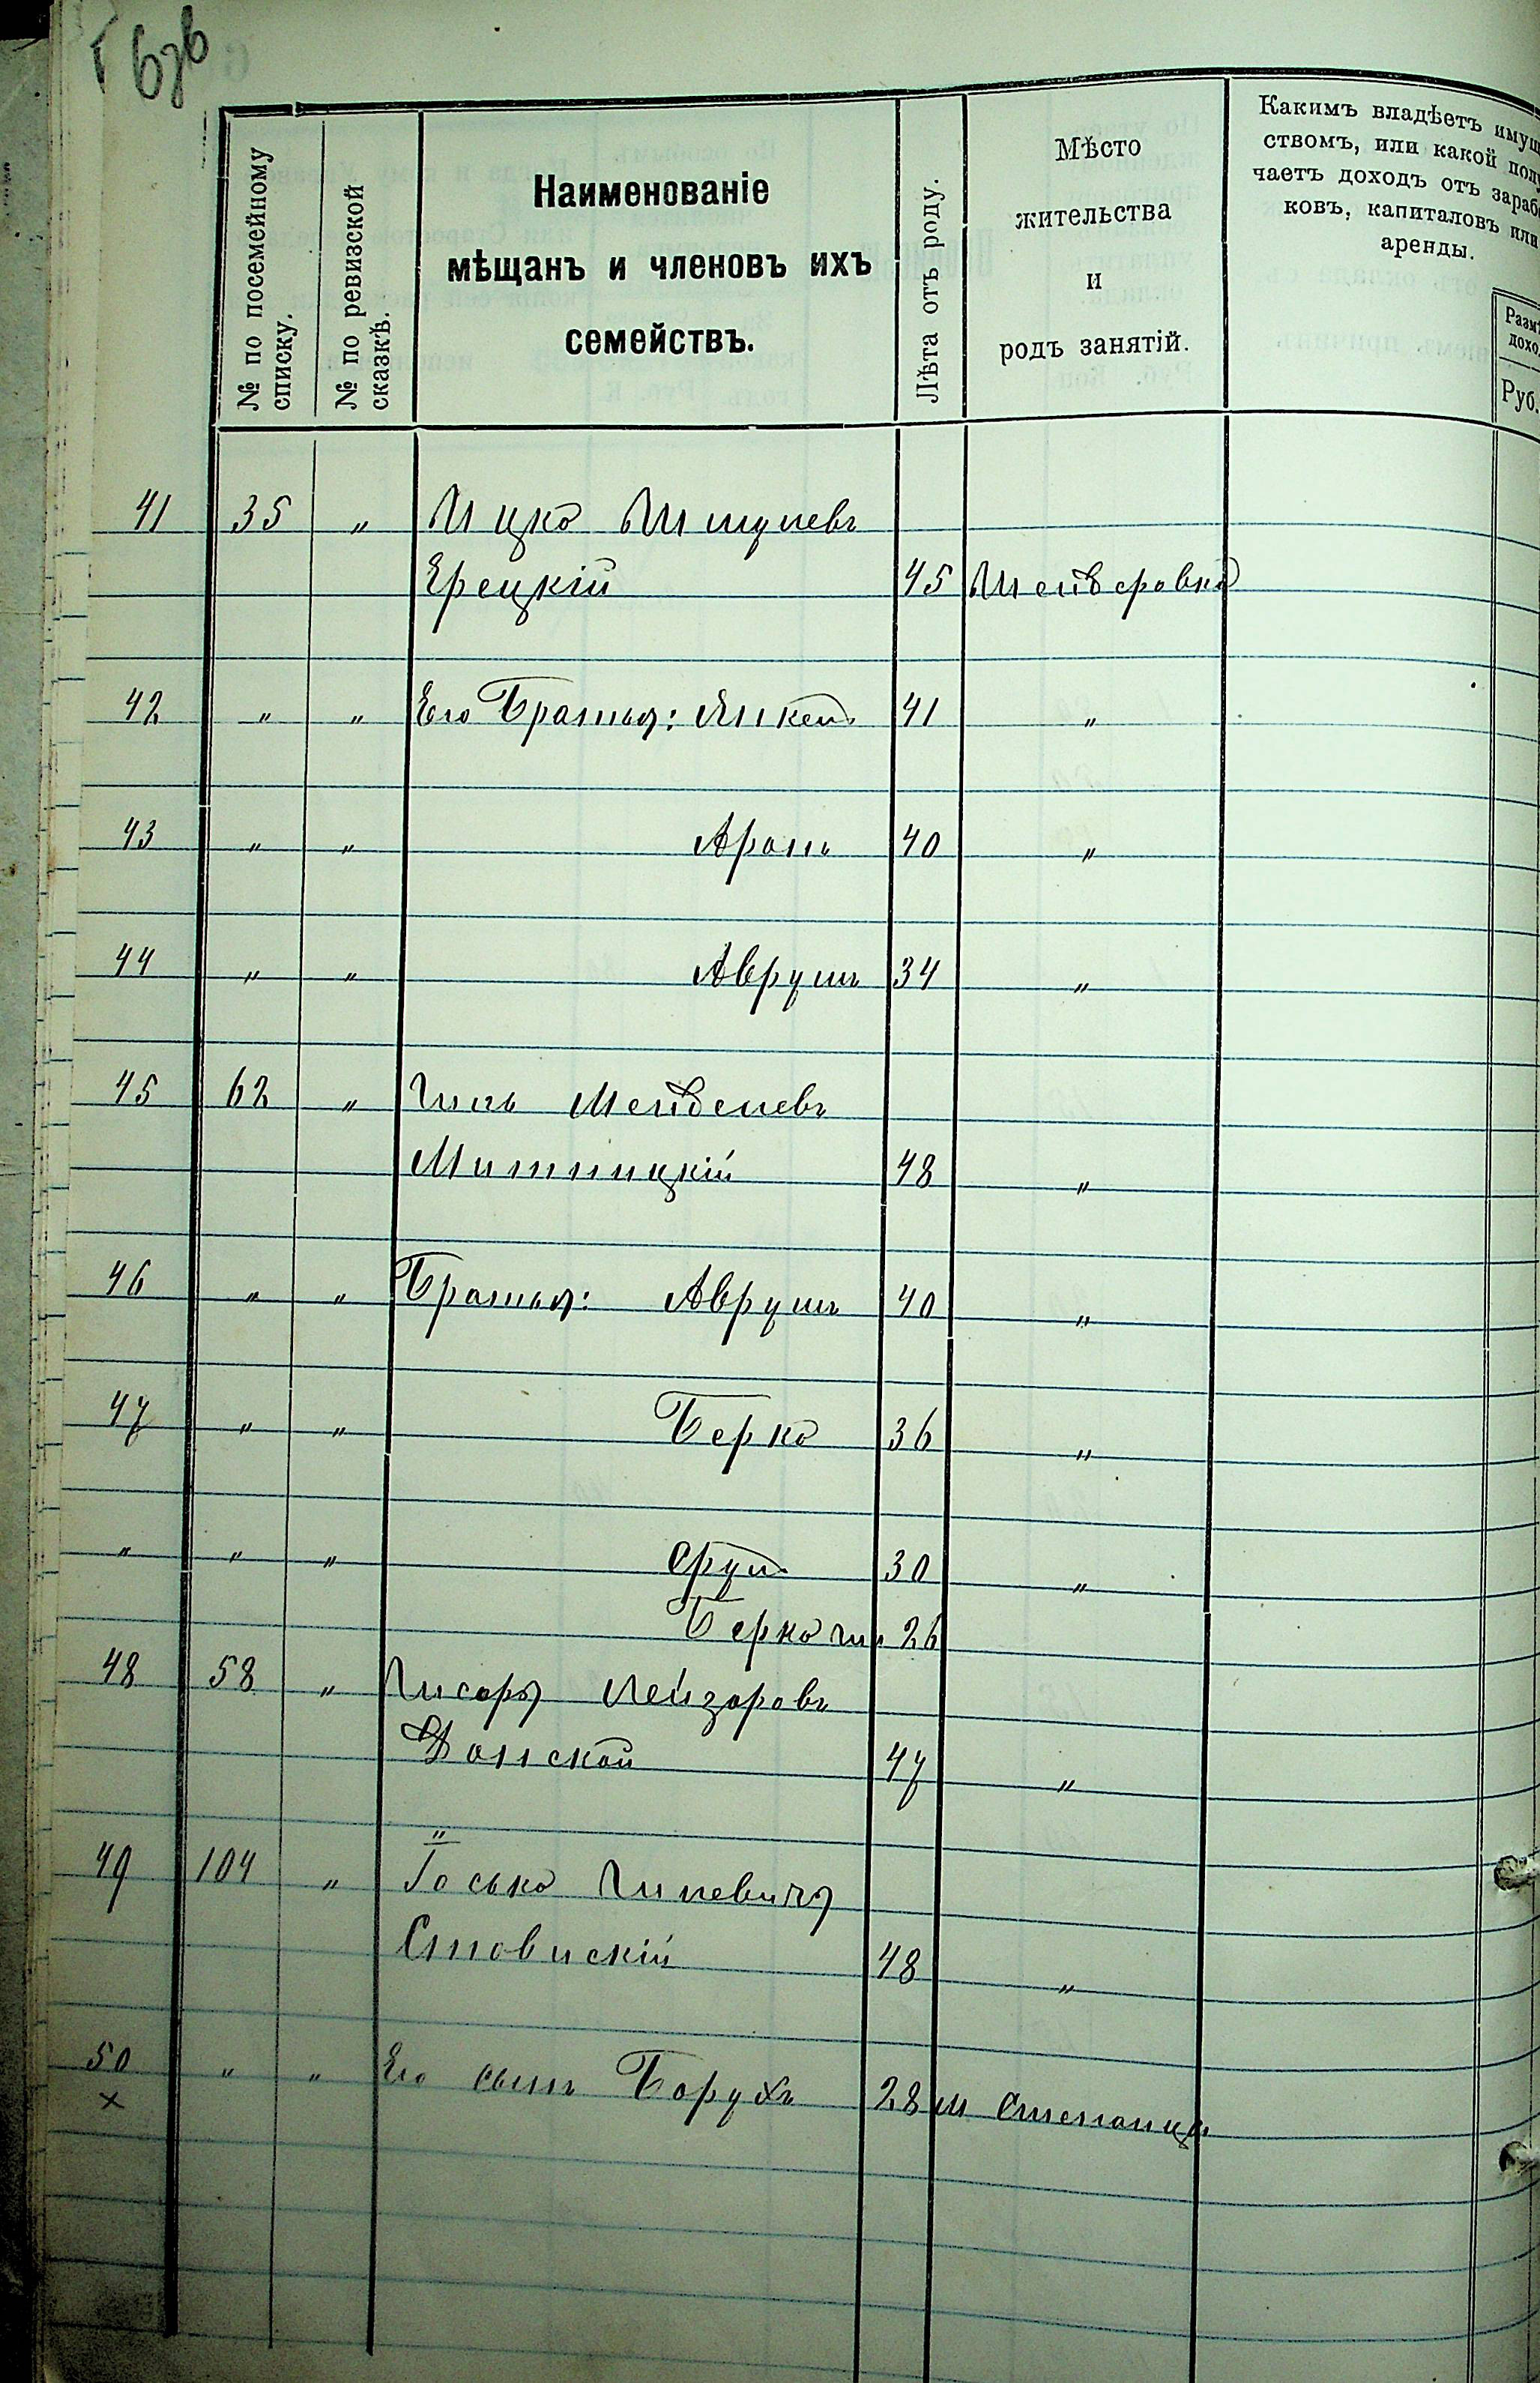 636
№ по посемейному списку.
№ по ревизской сказкѣ.
Наименованіе
мѣщанъ и членовъ ихъ
семействъ.
Лѣта отъ роду.
Мѣсто
жительства
и
родъ занятій.
Какимъ владѣетъ имущ
ствомъ, или какой полу
чаетъ доходъ отъ зарабо
ковъ, капиталовъ или
аренды.
Разм
дохо
Руб.
41 35 " Ицко
Ерецкій 45
42 " " Его Братья: Янкель 41 "
43 " " Аронъ 40 "
44 " " Аврумъ 34 "
45 62 " Чиль
Митницкій 48 "
46 " " Братья: Аврумъ 40 "
47 " " Берко 36 "
" " " Сруль 30 "
Берко 26
48 58 " Лейзоровъ
Донской 47 "
"
49 104 " Іосько
48 "
50 " " Его сынъ Борухъ 28 м Степанцы
х